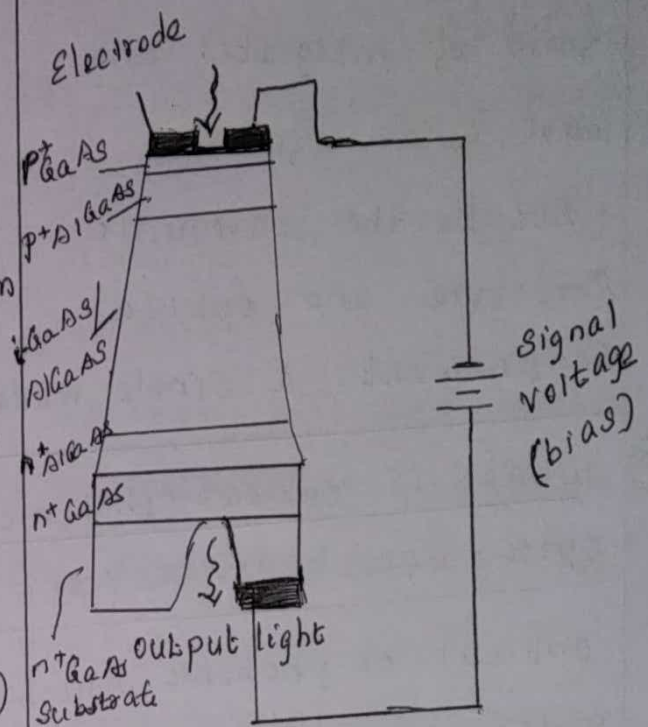 Electrode
p+GaAs
p+AlGaAs
i-GaAs/
AlGaAs
n+AlGaAs
n+GaAs
n+GaAs
substrate
output light
signal
voltage
(bias)
n
)